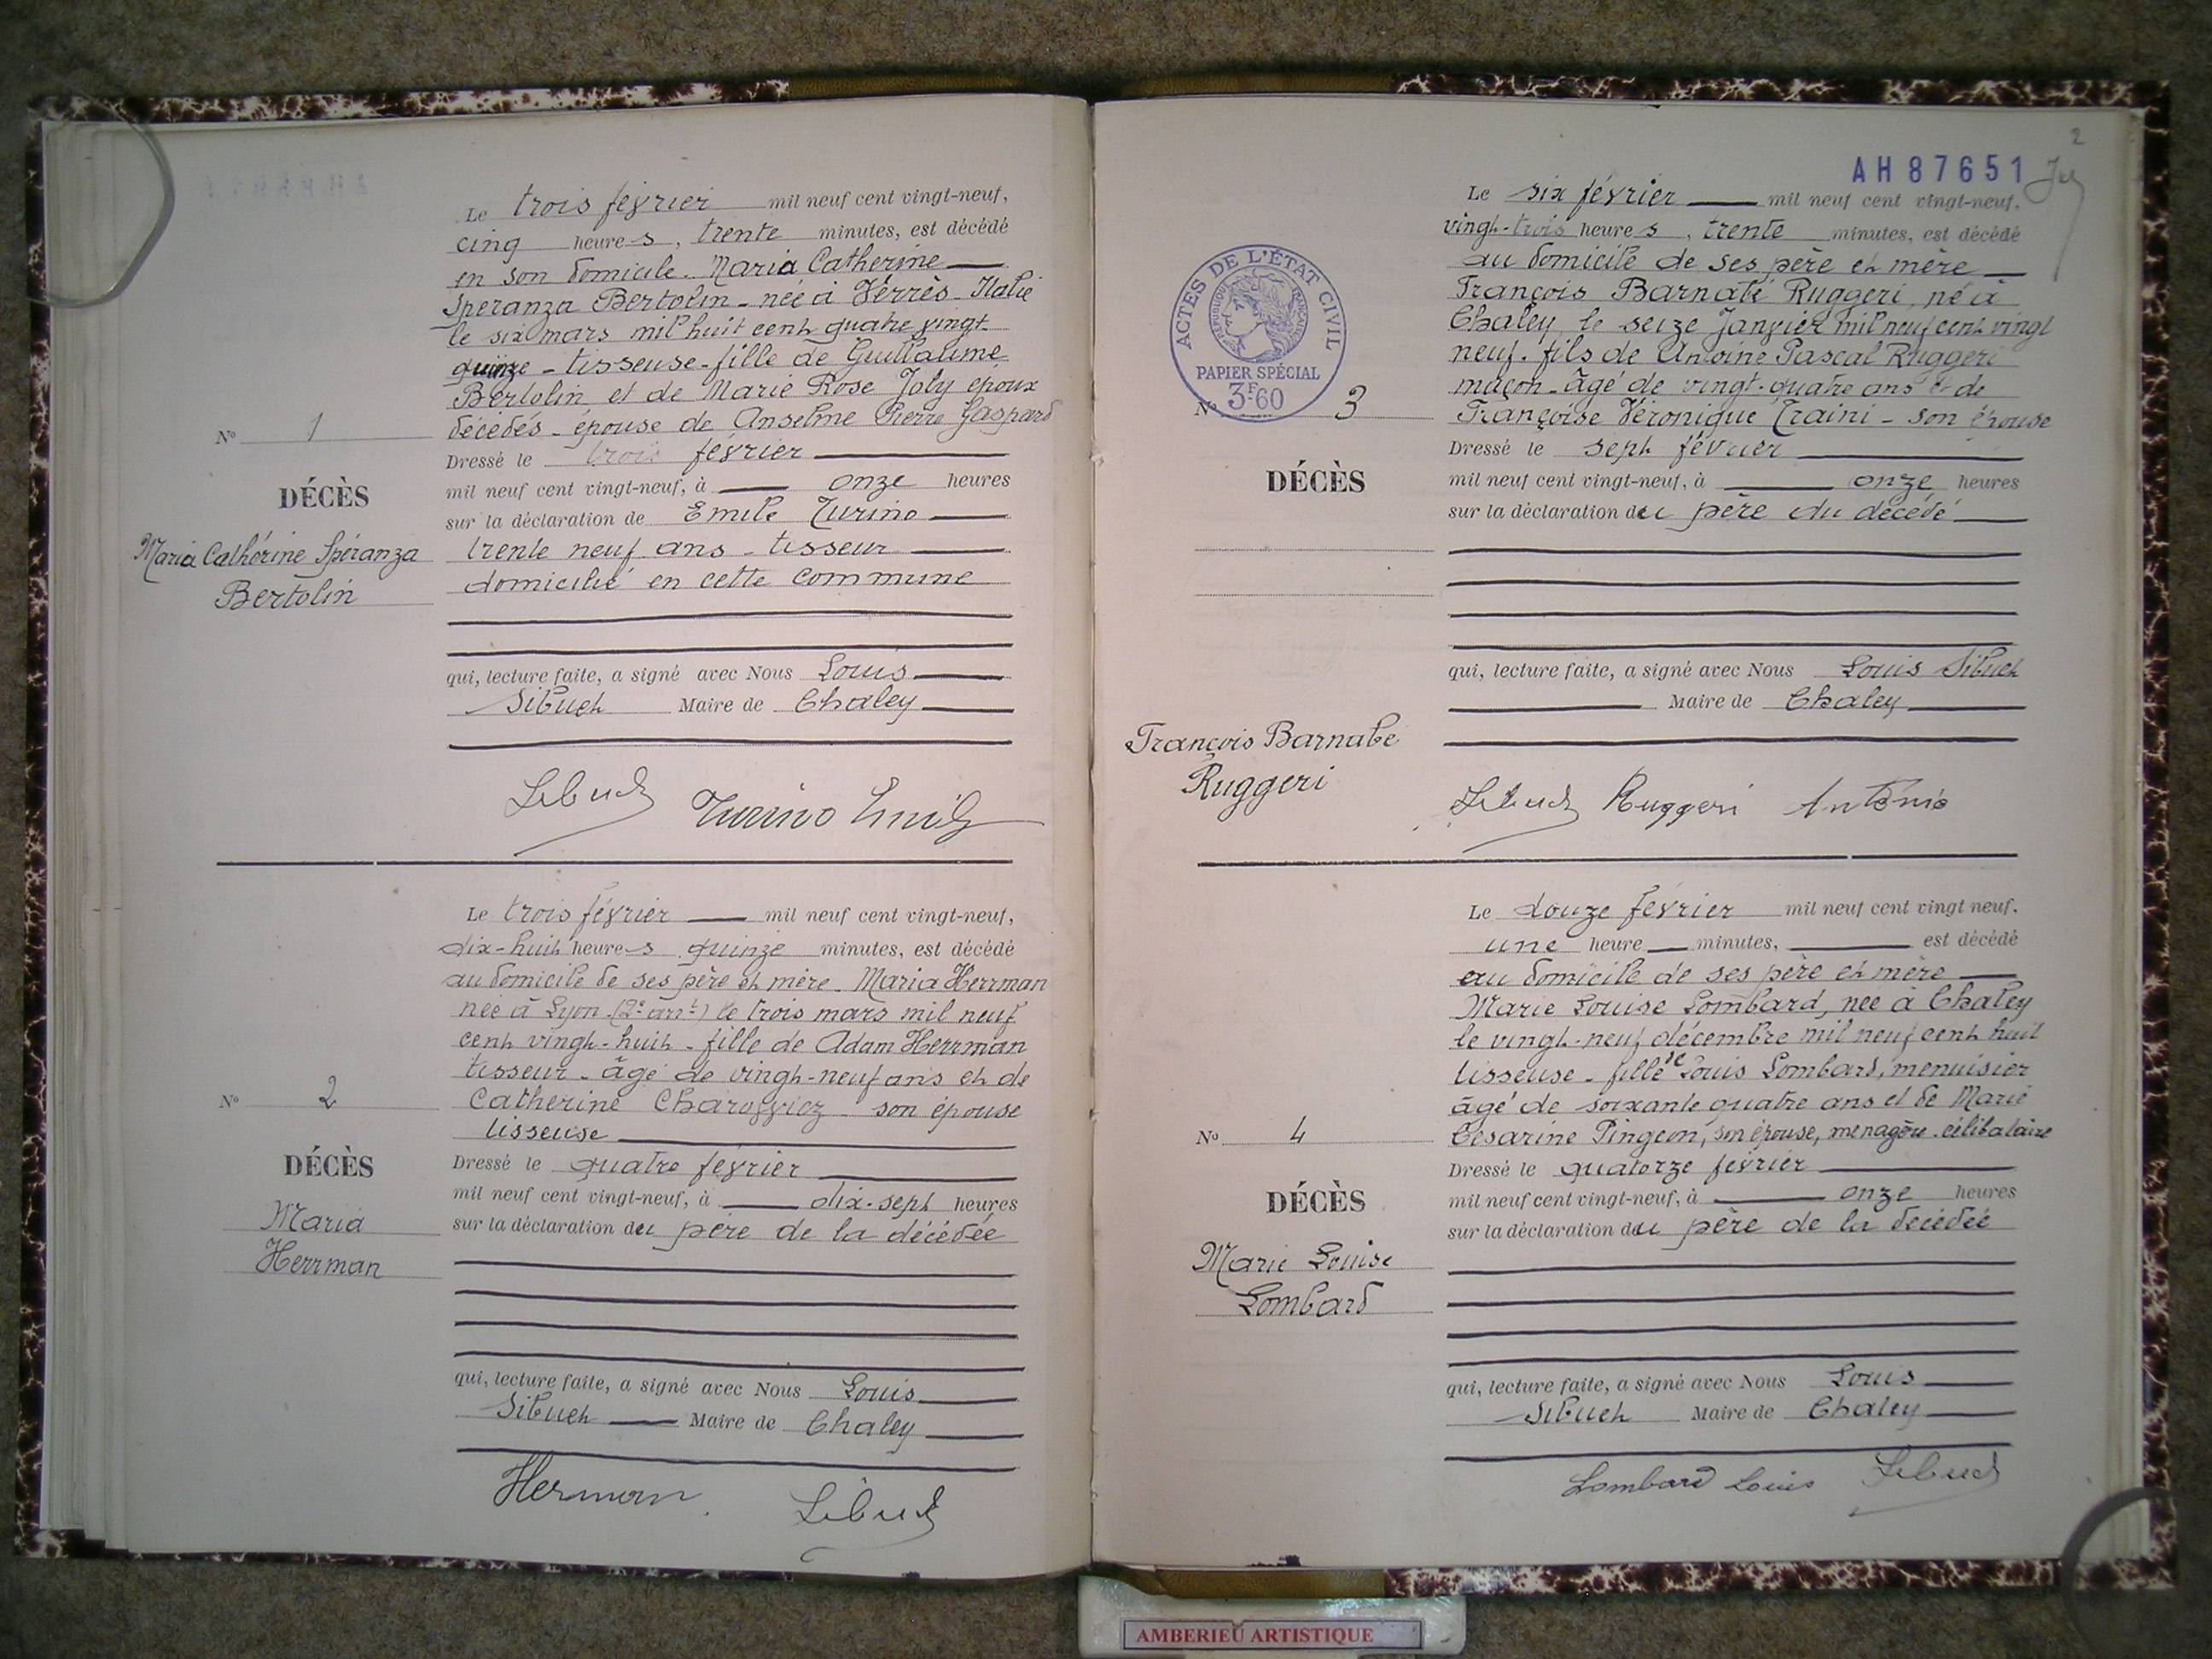 Le trois février mil neuf cent vingt-neuf,
cinq heures, trente minutes, est décédé
en son domicile. Maria Catherine
Speranza Bertolin - née à Verrès - Italie
le six mars mil huit cent quatre vingt
quinze - tisseuse - fille de Guillaume
Bertolin et de Marie Rose Joly époux
décédés - épouse de Anselme Pierre Gaspard
Dressé le trois février
mil neuf cent vingt-neuf, à onze heures
sur la déclaration de Emile Turino
trente neuf ans - tisseur
domicilié en cette commune
qui, lecture faite, a signé avec Nous Louis
Sibuet Maire de Chaley
Sibuet Turino Emile
N° 1
DÉCÈS
Maria Cathérine Spéranza
Bertolin
Le trois février mil neuf cent vingt-neuf,
dix-huit heures quinze minutes, est décédé
au domicile de ses père et mère. Maria Herrman
née à Lyon (2e arrt) le trois mars mil neuf
cent vingt-huit - fille de Adam Herrman
tisseur - âgé de vingt-neuf ans et de
Catherine son épouse
tisseuse
Dressé le quatre février
mil neuf cent vingt-neuf, à dix-sept heures
sur la déclaration du père de la décédée
qui, lecture faite, a signé avec Nous Louis
Sibuet Maire de Chaley
Herman. Sibuet
N° 2
DÉCÈS
Maria
Herrman
2
AH87651
Le six février mil neuf cent vingt-neuf.
vingt-trois heures, trente minutes, est décédé
au domicile de ses père et mère
François Barnabé Ruggeri, né à
Chaley le seize Janvier mil neuf cent vingt
neuf. fils de Antoine Pascal Ruggeri
maçon - âgé de vingt-quatre ans et de
Françoise Véronique Traini - son épouse
Dressé le sept février
mil neuf cent vingt-neuf, à onze heures
sur la déclaration du père du décédé
qui, lecture faite, a signé avec Nous Louis Sibuet
Maire de Chaley
Sibuet Ruggeri Antonio
ACTES DE L'ÉTAT CIVIL
RÉPUBLIQUE FRANÇAISE
PAPIER SPÉCIAL
3F60
N° 3
DÉCÈS
François Barnabe
Ruggeri
Le douze février mil neuf cent vingt neuf.
une heure minutes, est décédé
au domicile de ses père et mère
Marie Louise Lombard, née à Chaley
le vingt-neuf décembre mil neuf cent huit
tisseuse - fille de Louis Lombard, menuisier
âgé de soixante quatre ans et de Marie
Césarine Pingeon, son épouse, menagère. célibataire
Dressé le quatorze février
mil neuf cent vingt-neuf, à onze heures
sur la déclaration du père de la décédée
qui, lecture faite, a signé avec Nous Louis
Sibuet Maire de Chaley
Lombard Louis Sibuet
N° 4
DÉCÈS
Marie Louise
Lombard
AMBERIEU ARTISTIQUE